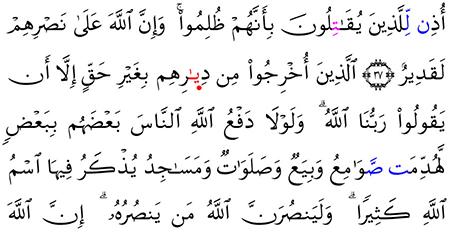 أُذِن لِّلَّذِينَ يُقَٰتِلُونَ بِأَنَّهُمْ ظُلِمُوا۟ ۚ وَإِنَّ ٱللَّهَ عَلَىٰ نَصْرِهِمْ
لَقَدِيرٌ ٣٧ ٱلَّذِينَ أُخْرِجُوا۟ مِن دِيَٰرِهِم بِغَيْرِ حَقٍّ إِلَّا أَن
يَقُولُوا۟ رَبُّنَا ٱللَّهُ ۗ وَلَوْلَا دَفْعُ ٱللَّهِ ٱلنَّاسَ بَعْضَهُم بِبَعْضٍ
لَّهُدِّمَت صَّوَٰمِعُ وَبِيَعٌ وَصَلَوَٰتٌ وَمَسَٰجِدُ يُذْكَرُ فِيهَا ٱسْمُ
ٱللَّهِ كَثِيرًا ۗ وَلَيَنصُرَنَّ ٱللَّهُ مَن يَنصُرُهُۥ ۗ إِنَّ ٱللَّهَ